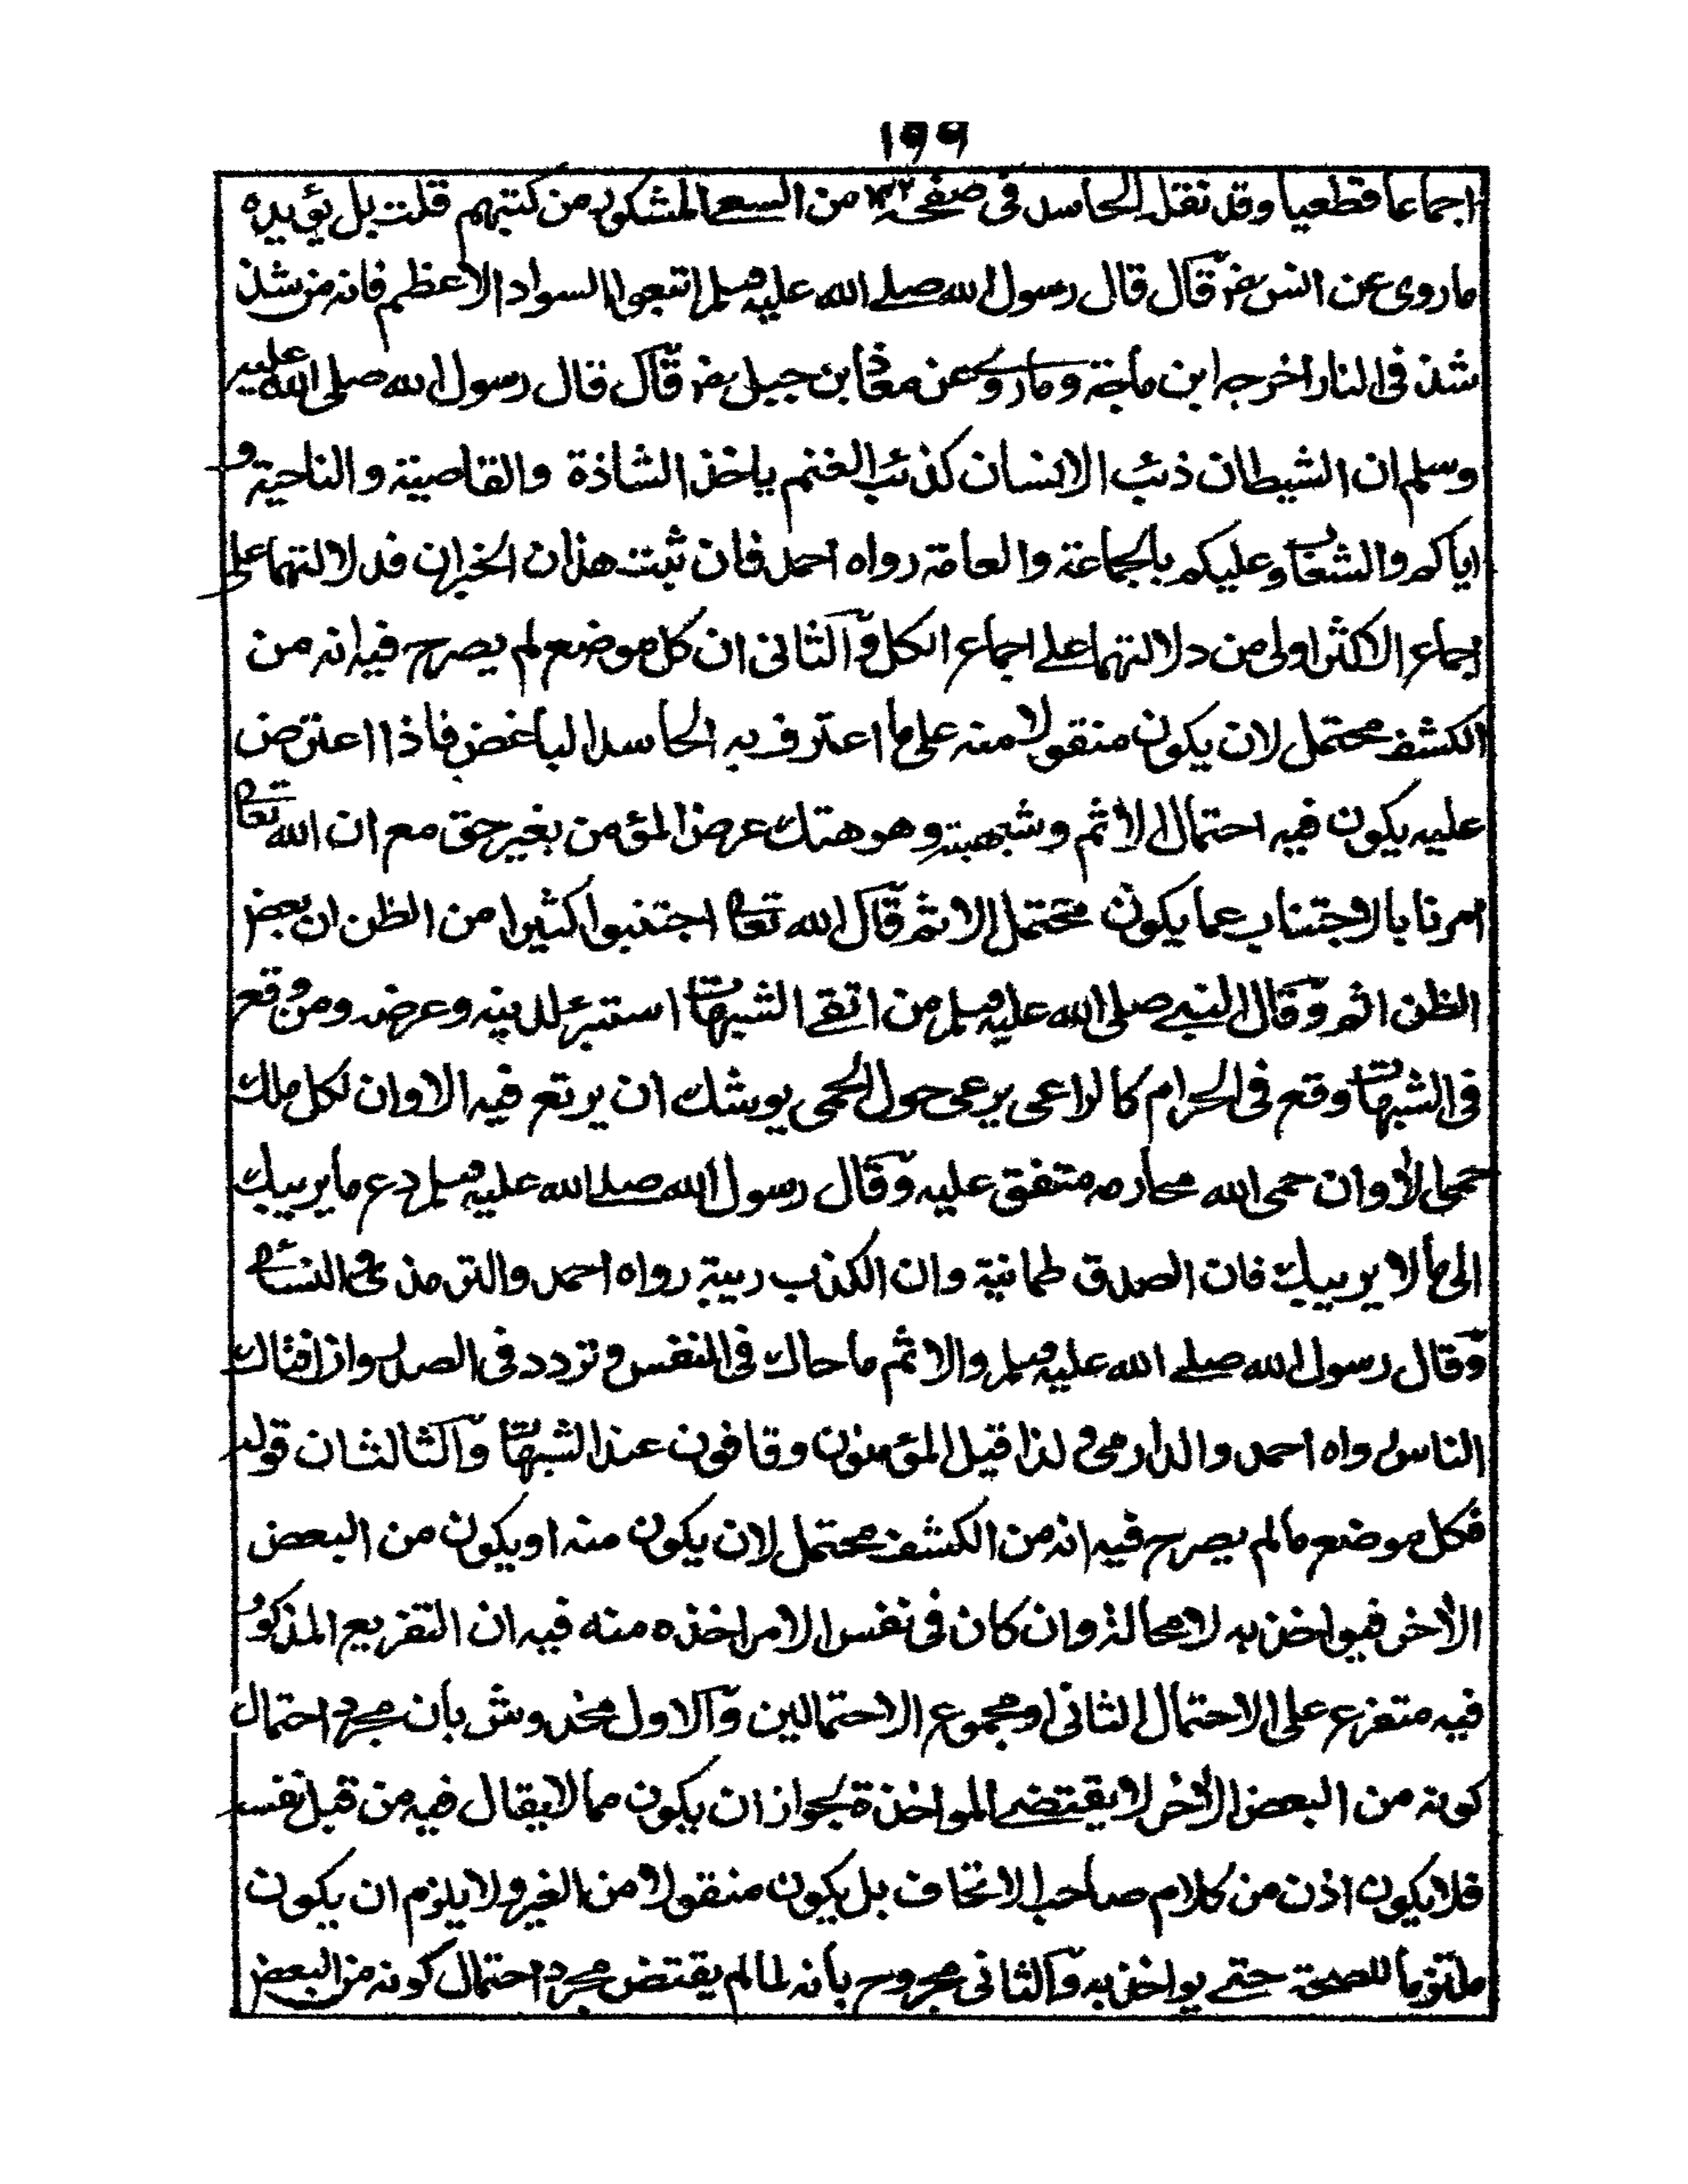 ١٩٩
اجماعا قطعيا وقد نقل الحاسد فى صفحـ من السعى المشكور من كتبهم قلت بل يؤيده
ما روى عن انس رض قال قال رسول الله صلى الله عليه وسلم اتبعوا السواد الاعظم فانه من شذ
شذ فى النار اخرجه ابن ماجة وما روى عن معاذ بن جبل رض قال قال رسول الله صلى الله عليه
وسلم ان الشيطان ذئب الانسان كذئب الغنم ياخذ الشاذة والقاصية والناحية و
اياكم والشعاب وعليكم بالجماعة والعامة رواه احمد فان ثبت هذان الخبران فدلالتهما على
اجماع الاكثر اولى من دلالتهما على اجماع الكل والثانى ان كل موضع لم يصرح فيه انه من
الكشف محتمل لان يكون منقولا منه على ما اعترف به الحاسد الباغض فاذا اعترض
عليه يكون فيه احتمال الاثم وشبهته وهو هتك عرض المؤمن بغير حق مع ان الله تعالى
امرنا بالاجتناب عما يكون محتمل الاثم قال الله تعالى اجتنبوا كثيرا من الظن ان بعض
الظن اثم وقال النبى صلى الله عليه وسلم من اتقى الشبهات استبرء لدينه وعرضه ومن وقع
فى الشبهات وقع فى الحرام كالراعى يرعى حول الحمى يوشك ان يرتع فيه الا وان لكل ملك
حمى الا وان حمى الله محارمه متفق عليه وقال رسول الله صلى الله عليه وسلم دع ما يريبك
الى ما لا يريبك فان الصدق طمانية وان الكذب ريبة رواه احمد والترمذى والنسائى
وقال رسول الله صلى الله عليه وسلم والاثم ما حاك فى النفس وتردد فى الصدر وان افتاك
الناس رواه احمد والدارمى ولذا قيل المؤمنون وقافون عند الشبهات والثالث ان قوله
فكل موضع ما لم يصرح فيه انه من الكشف محتمل لان يكون منه او يكون من البعض
الأخر فيواخذ به لا محالة وان كان فى نفس الامر اخذه منه فيه ان التفريع المذكور
فيه متفرع على الاحتمال الثانى او مجموع الاحتمالين والاول مخدوش بأن مجرد احتمال
كونه من البعض الأخر لا يقتضى المواخذة لجواز ان يكون مما لا يقال فيه من قبل نفسه
فلا يكون اذن من كلام صاحب الاتحاف بل يكون منقولا من الغير ولا يلزم ان يكون
ملتزما للصحة حتى يواخذ به والثانى مجروح بأنه لما لم يقتض مجرد احتمال كونه من البعض